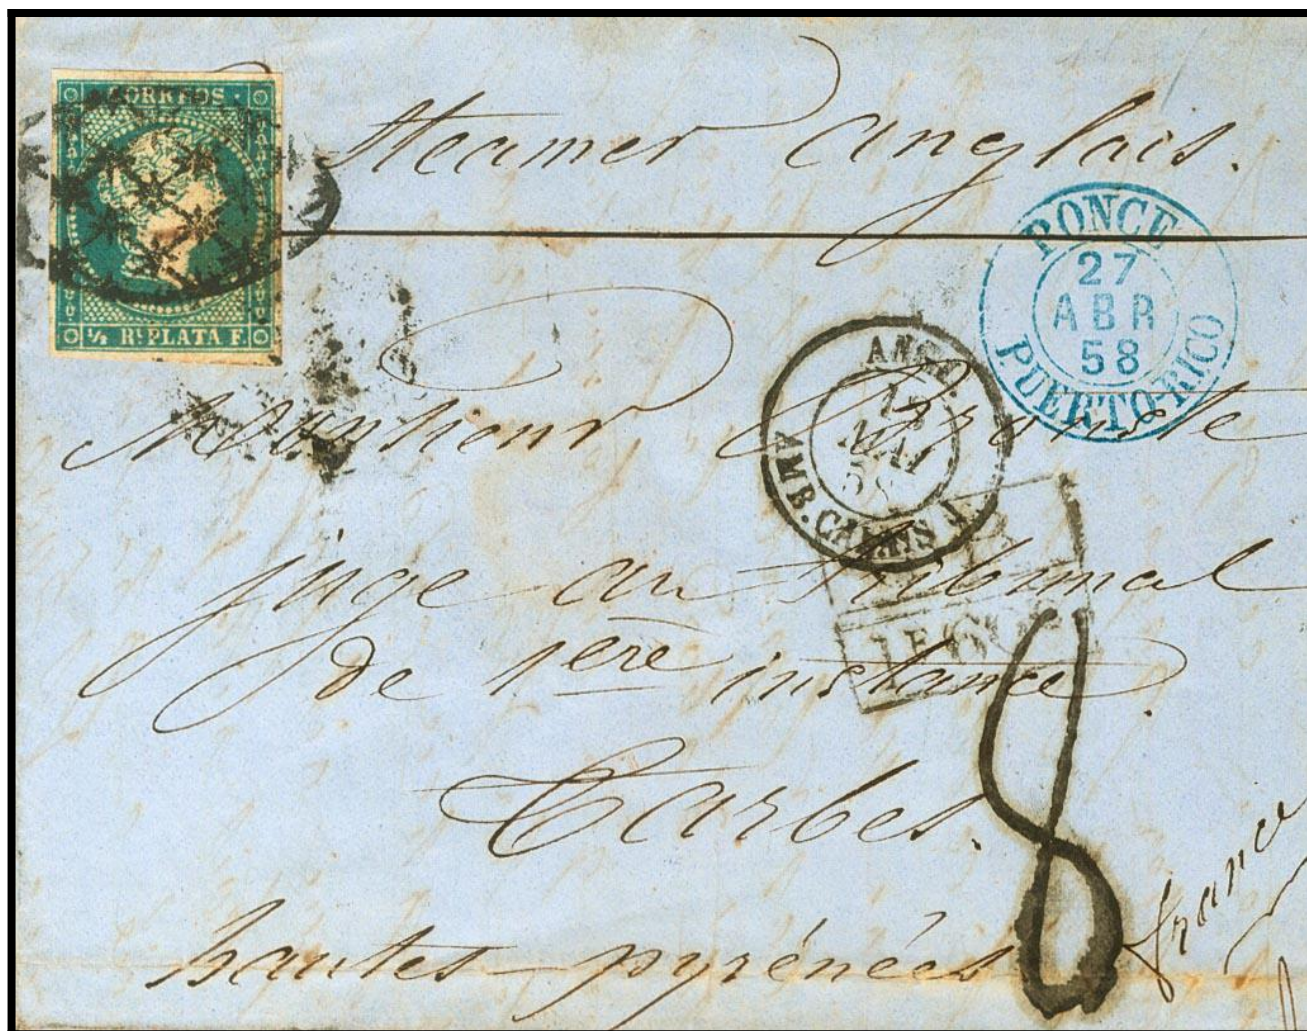 CORREOS
½ Rl. PLATA F.
Steamer anglais.
PONCE
27
ABR
58
PUERTO-RICO
MAI
58
AMB. CALAIS
Monsieur
juge au tribunal
de 1ère instance.
Tarbes.
8
hautes-pyrénées
france